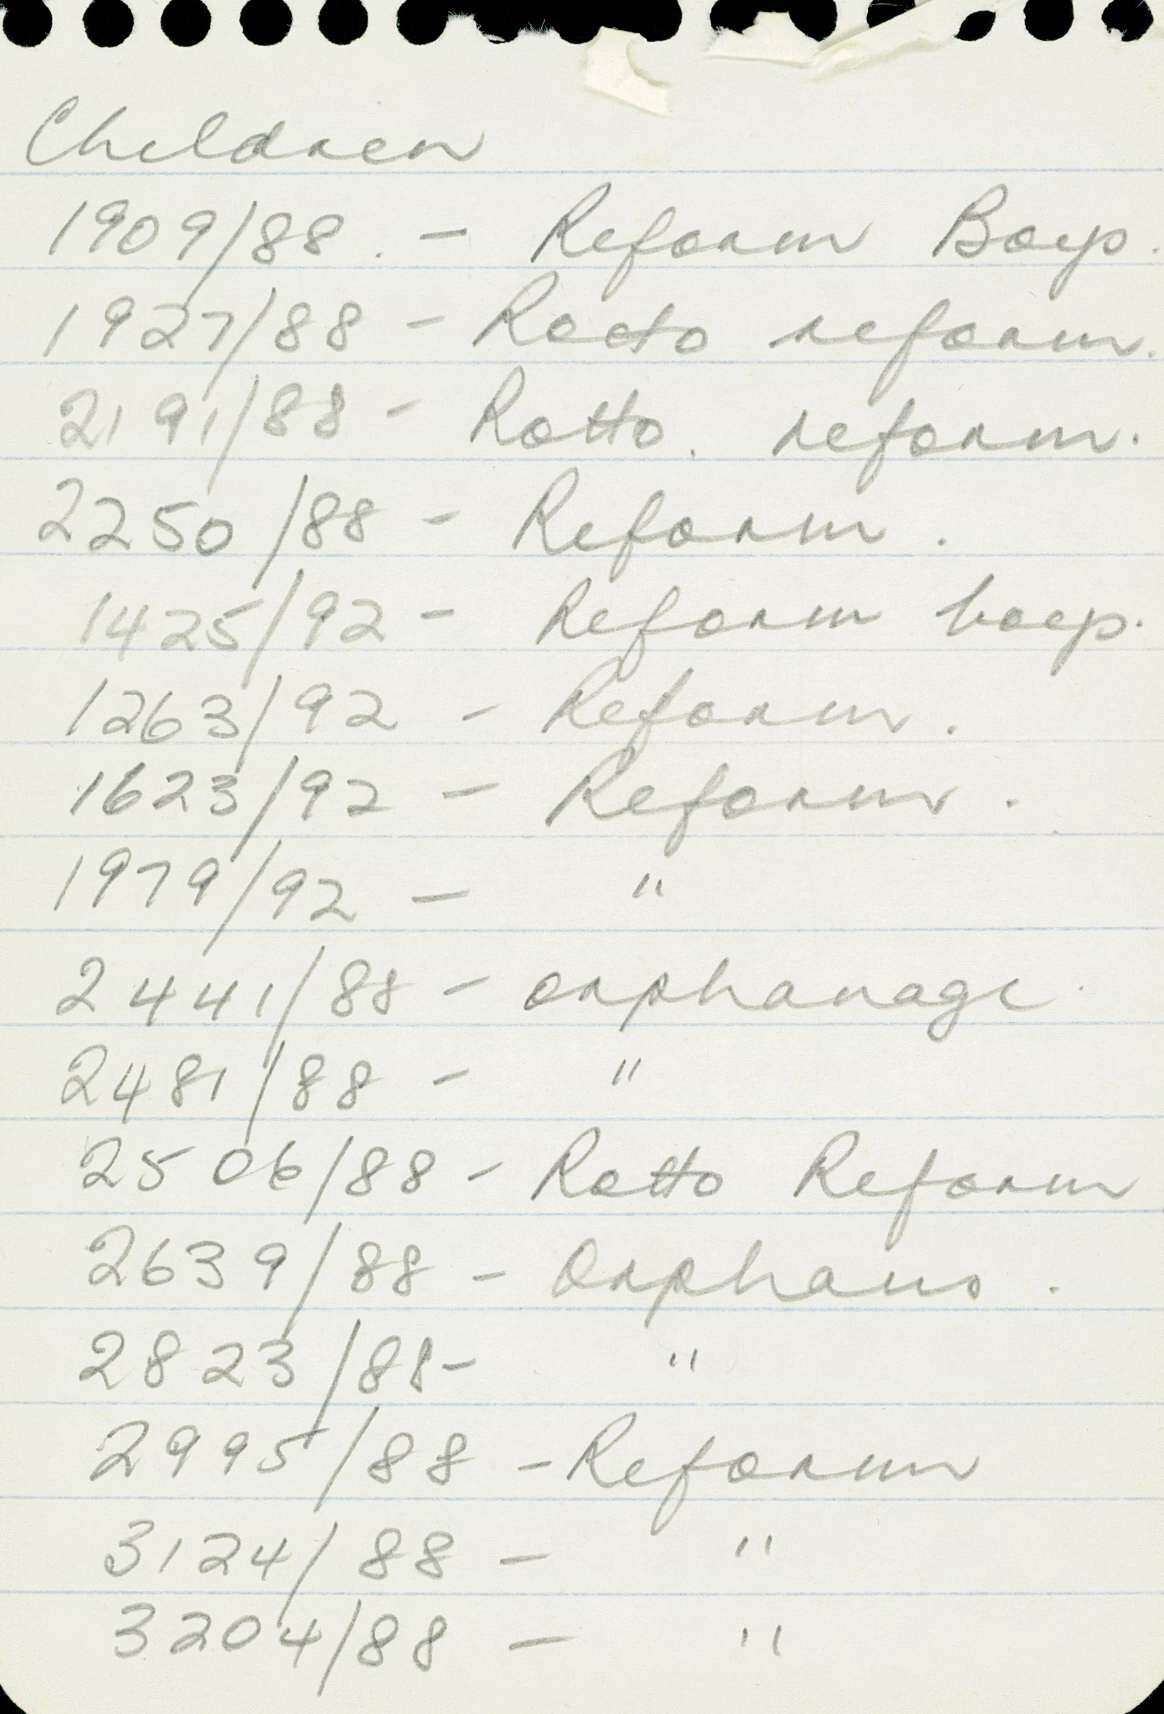 Children
1909/88. - Reform Boys.
1927/88 - Rotto reform.
2191/88 - Rotto. reform.
2250/88 - Reform.
1425/92 - Reform boys.
1263/92 - Reform.
1623/92 - Reform.
1979/92 - "
2441/88 - orphanage.
2481/88 - "
2506/88 - Rotto Reform
2639/88 - Orphans.
2823/88 - "
2995/88 - Reform
3124/88 - "
3204/88 - "